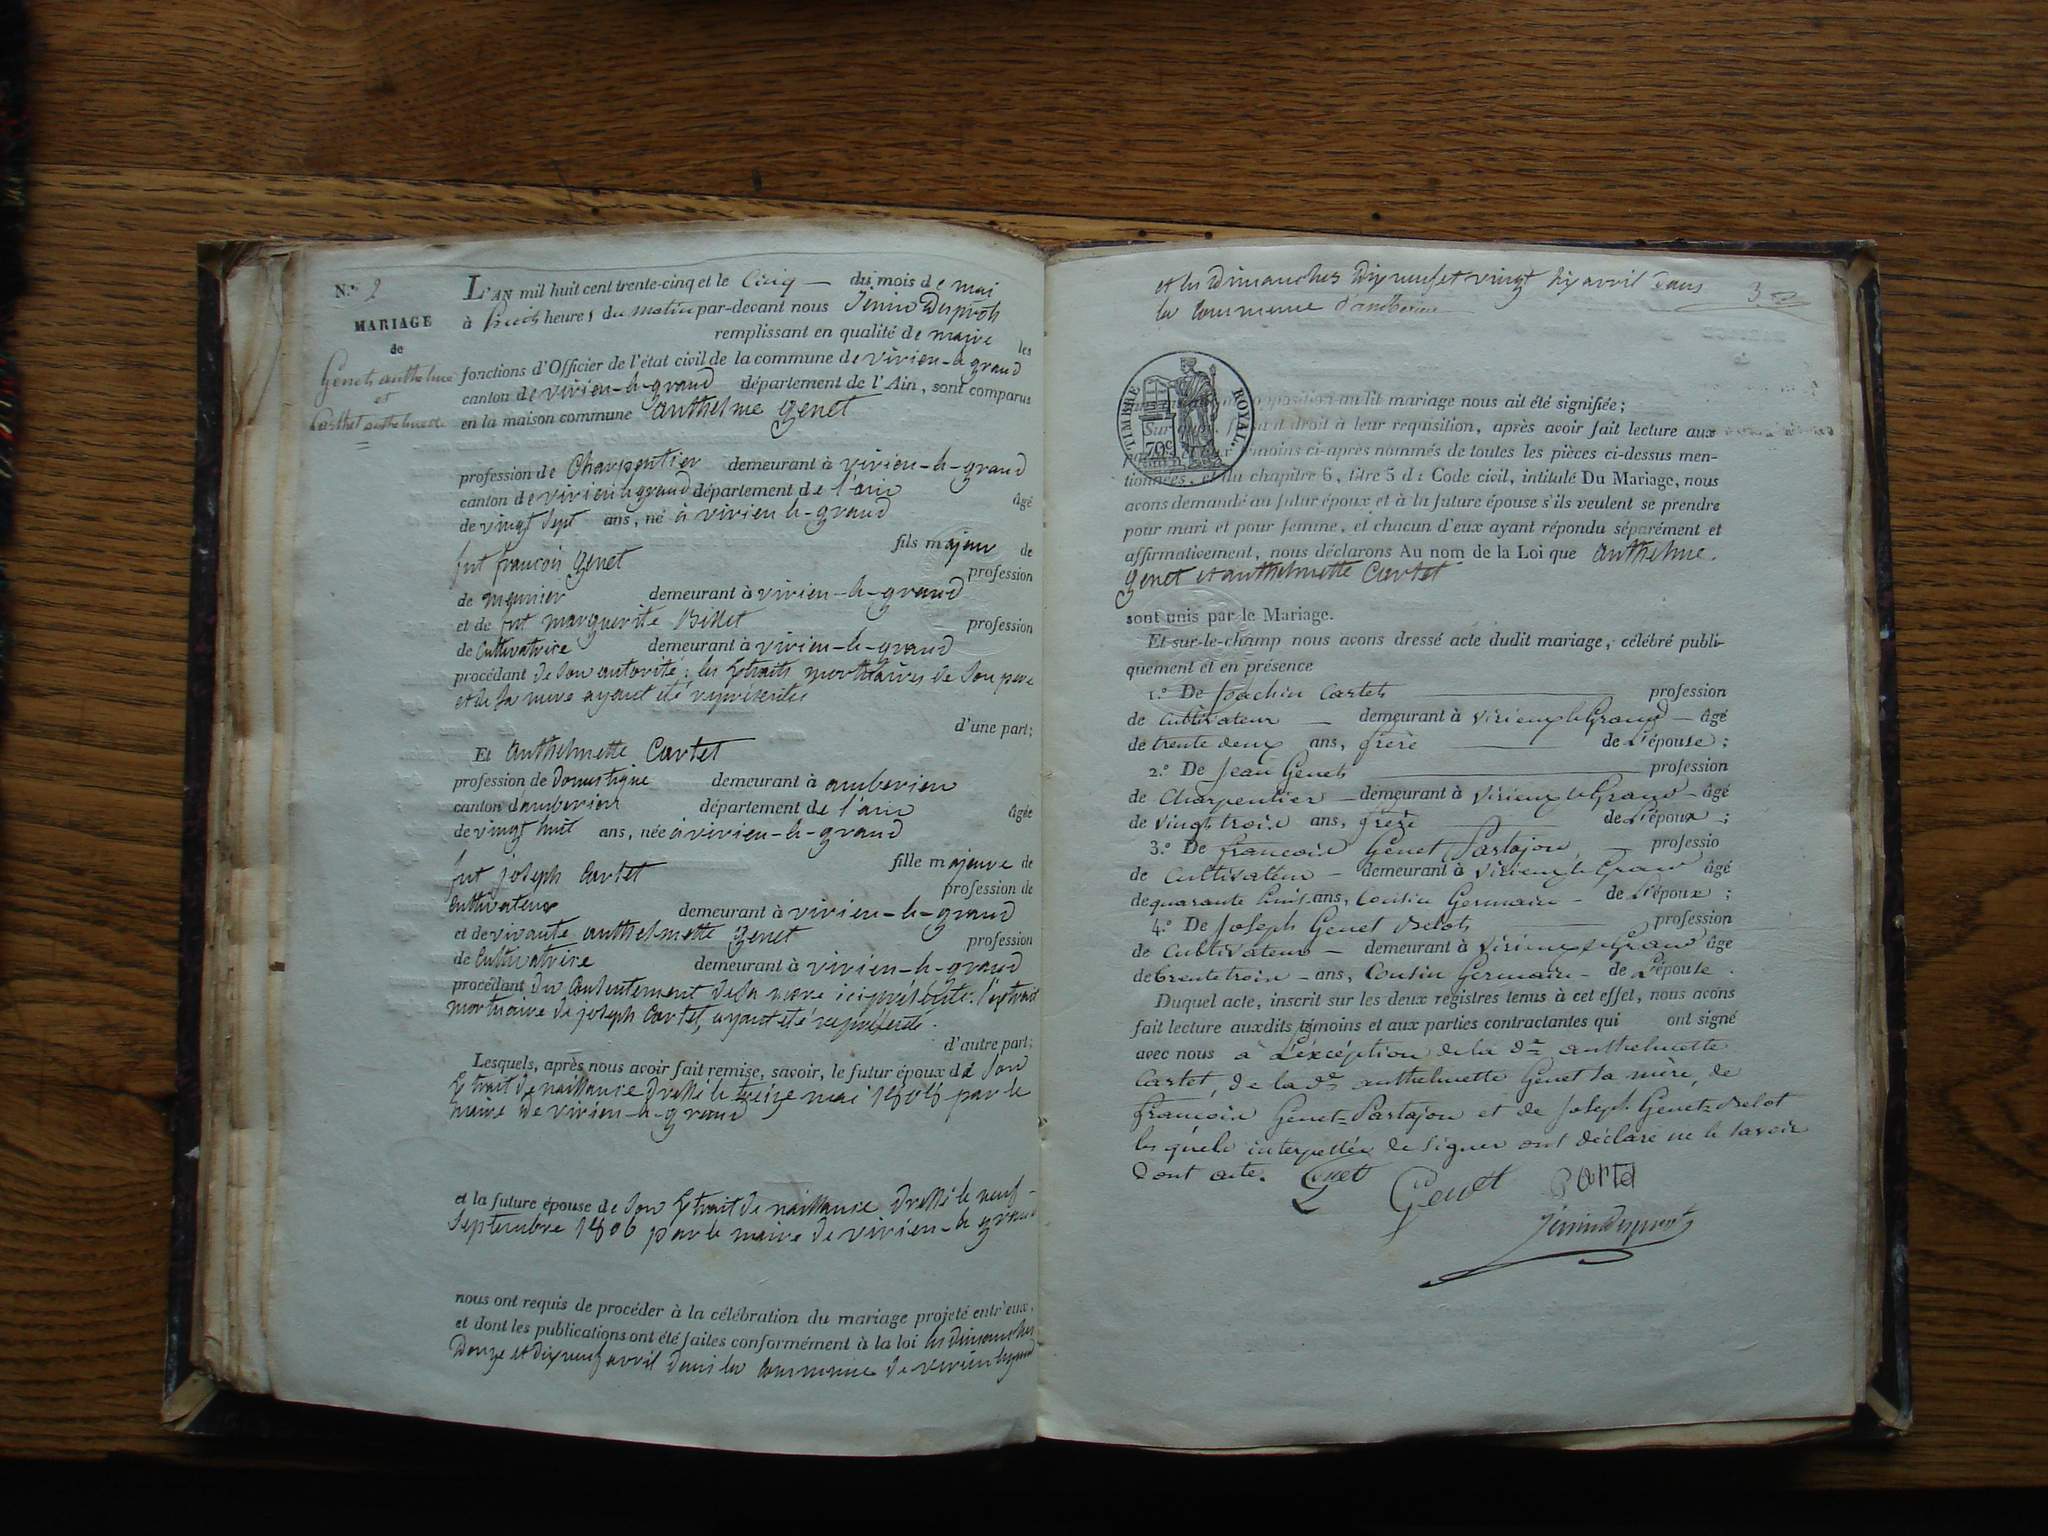 N.° 2
MARIAGE
de
Genet anthelme
et
Cartet anthelmette
L'AN mil huit cent trente-cinq et le Cinq du mois de mai
à huit heures du matin par-devant nous Jenin Desprots
remplissant en qualité de maire les
fonctions d'Officier de l'état civil de la commune de virieu-le-grand
canton de virieu-le-grand département de l'Ain, sont comparus
en la maison commune anthelme genet
profession de Charpentier demeurant à virieu-le-grand
canton de virieu le grand département de l'ain âgé
de vingt sept ans, né à virieu le-grand
fils majeur de
fut francois genet profession
de meunier demeurant à virieu-le-grand
et de fut marguerite Billet profession
de Cultivatrice demeurant à virieu-le-grand
procédant de Son autorité : les Extraits mortuaires de Son pere
et de Sa mere ayant été représentés
d'une part;
Et anthelmette Cartet
profession de domestique demeurant à amberieu
canton d'amberieu département de l'ain âgée
de vingt huit ans, née à virieu-le-grand
fille majeure de
fut joseph Cartet profession de
Cultivateur demeurant à virieu-le-grand
et de vivante anthelmette genet profession
de Cultivatrice demeurant à virieu-le-grand
procédant du Consentement de Sa mere ici présente : l'extrait
mortuaire de joseph Cartet, ayant été représenté.
d'autre part;
Lesquels, après nous avoir fait remise, savoir, le futur époux de Son
Extrait de naissance dressé le treize mai 1808 par le
maire de virieu-le-grand
et la future épouse de Son Extrait de naissance dressé le neuf
Septembre 1806 par le maire de virieu-le grand
nous ont requis de procéder à la célébration du mariage projeté entr'eux,
et dont les publications ont été faites conformément à la loi les dimanches
Douze et dix neuf avril dans la Commune de virieu legrand
et les Dimanches Dix neuf et vingt Six avril Dans
la Commune d'amberieu
3
TIMBRE ROYAL
70c
opposition audit mariage nous ait été signifiée;
droit à leur requisition, après avoir fait lecture aux
témoins ci-après nommés de toutes les pièces ci-dessus men-
tionnées, et du chapitre 6, titre 5 du Code civil, intitulé Du Mariage, nous
avons demandé au futur époux et à la future épouse s'ils veulent se prendre
pour mari et pour femme, et chacun d'eux ayant répondu séparément et
affirmativement, nous déclarons Au nom de la Loi que anthelme
genet et anthelmette Cartet
sont unis par le Mariage.
Et sur-le-champ nous avons dressé acte dudit mariage, célébré publi-
quement et en présence
1.° De Joachin Cartet profession
de Cultivateur demeurant à Virieux le Grand âgé
de trente deux ans, frere de L'épouse;
2.° De Jean Genet profession
de Charpentier demeurant à Virieux le Grand âgé
de vingt trois ans, frere de L'époux;
3.° De francois Genet Partajon professio
de Cultivateur demeurant à Virieux le Grand âgé
de quarante huit ans, Cousin Germain de L'époux;
4.° De Joseph Genet Belot profession
de Cultivateur demeurant à Virieux le Grand âgé
de trente trois ans, Cousin Germain de L'épouse.
Duquel acte, inscrit sur les deux registres tenus à cet effet, nous avons
fait lecture auxdits témoins et aux parties contractantes qui ont signé
avec nous à L'exception de la d.e anthelmette
Cartet, de la d.e anthelmette Genet sa mère, de
francois Genet-Partajon et de Joseph Genet-Belot
lesquels interpellés de signer ont déclaré ne le savoir
Dont acte. Genet Genet Cartet
Jenin Desprots